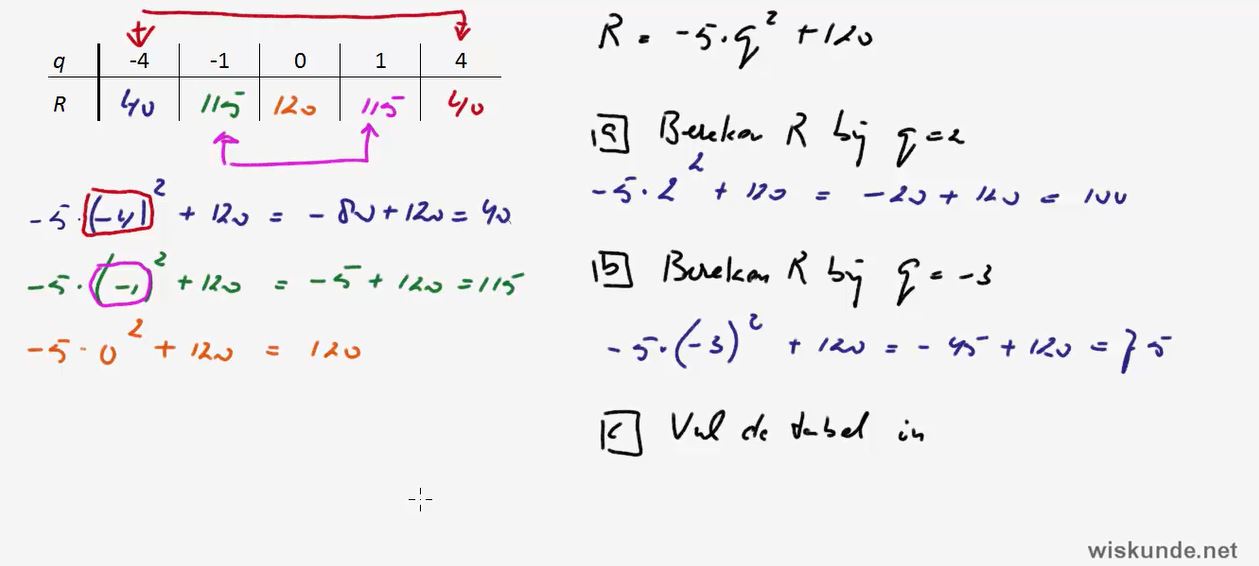 q -4 -1 0 1 4
R 40 115 120 115 40
-5·(-4)² + 120 = -80 + 120 = 40
-5·(-1)² + 120 = -5 + 120 = 115
-5·0² + 120 = 120
R = -5·q² + 120
a Bereken R bij q = 2
-5·2² + 120 = -20 + 120 = 100
b Bereken R bij q = -3
-5·(-3)² + 120 = -45 + 120 = 75
c Vul de tabel in
wiskunde.net